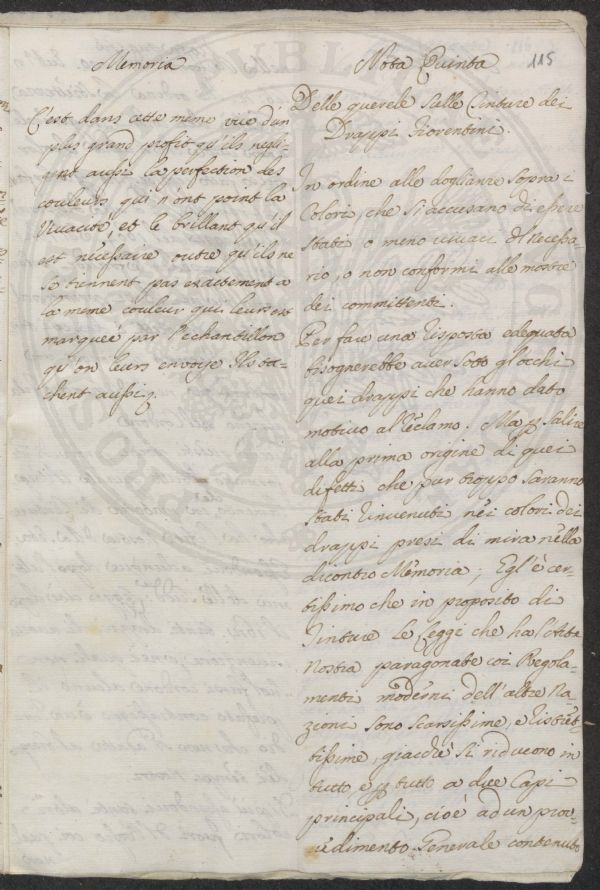 115
Memoria
C'est dans cette meme vüe d'un
plus grand profit qu'ils negli-
gent aussi la perfection des
couleurs qui n'ont point la
vivacité, et le brillant qu'il
est nécessaire outre qu'ils ne
se tiennent pas exactement a
la meme couleur qui leur est
marqueé par l'echantillon
qu'on leurs envoye Ils ta-
chent aussi
Nota Quinta
Delle querele sulle Tinture dei
Drappi Fiorentini.
In ordine alle doglianze sopra i
Colori, che si accusano di essere
stati o meno vivaci del Necessa-
rio, o non conformi alle mostre
dei committenti.
Per fare una risposta adequata
bisognerebbe aver sotto gl'occhi
quei drappi che hanno dato
motivo al Reclamo. Ma p salire
alla prima origine di quei
difetti che pur troppo saranno
stati rinvenuti nei colori dei
drappi presi di mira nella
dicontro Memoria; Egl'è cer-
tissimo che in proposito di
Tinture le Leggi che ha l'Arte
Nostra paragonate coi Regola-
menti moderni dell'altre Na-
zioni sono scarsissime, e ristret-
tissime, giacchè si riducono in
tutto, e p tutto a due Capi
principali, cioè ad un prov-
vedimento Generale contenuto